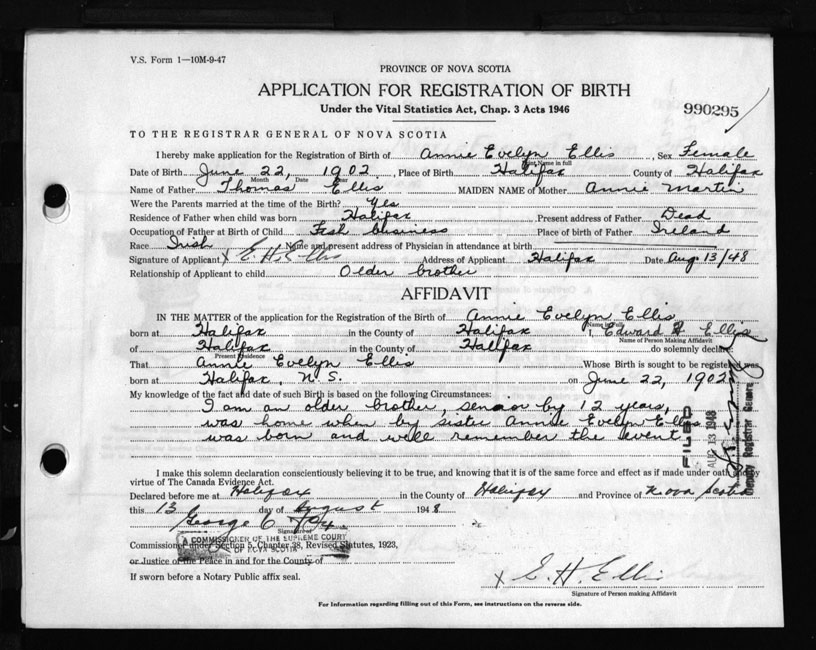 V.S. Form 1—10M-9-47
PROVINCE OF NOVA SCOTIA
APPLICATION FOR REGISTRATION OF BIRTH
Under the Vital Statistics Act, Chap. 3 Acts 1946
990295
TO THE REGISTRAR GENERAL OF NOVA SCOTIA
I hereby make application for the Registration of Birth of Annie Evelyn Ellis, Sex Female
Print Name in full
Date of Birth June 22, 1902, Place of Birth Halifax County of Halifax
Month Date Year
Name of Father Thomas Ellis MAIDEN NAME of Mother Annie Martin
Were the Parents married at the time of Birth? Yes
Residence of Father when child was born Halifax Present address of Father Dead
Occupation of Father at Birth of Child Fish business Place of birth of Father Ireland
Race Irish Name and present address of Physician in attendance at birth
Signature of Applicant X E H Ellis Address of Applicant Halifax Date Aug 13/48
Relationship of Applicant to child Older brother
AFFIDAVIT
IN THE MATTER of the application for the Registration of the Birth of Annie Evelyn Ellis
Name in Full
born at Halifax in the County of Halifax I, Edward H Ellis
Name of Person Making Affidavit
of Halifax in the County of Halifax do solemnly declare
Present Residence
That Annie Evelyn Ellis Whose Birth is sought to be registered was
born at Halifax, N.S. on June 22, 1902
My knowledge of the fact and date of such Birth is based on the following Circumstances:
I am an older brother, senior by 12 years,
was home when by sister Annie Evelyn Ellis
was born and well remember the event
FILED
AUG 13 1948
Deputy Registrar General
I make this solemn declaration conscientiously believing it to be true, and knowing that it is of the same force and effect as if made under oath and by
virtue of The Canada Evidence Act.
Declared before me at Halifax in the County of Halifax and Province of Nova Scotia
this 13 day of August 1948
George C
Signature of
A COMMISSIONER OF THE SUPREME COURT
OF NOVA SCOTIA
Commissioner under Section 5, Chapter 38, Revised Statutes, 1923,
or Justice of the Peace in and for the County of
If sworn before a Notary Public affix seal.
X E. H. Ellis
Signature of Person making Affidavit
For Information regarding filling out of this Form, see instructions on the reverse side.